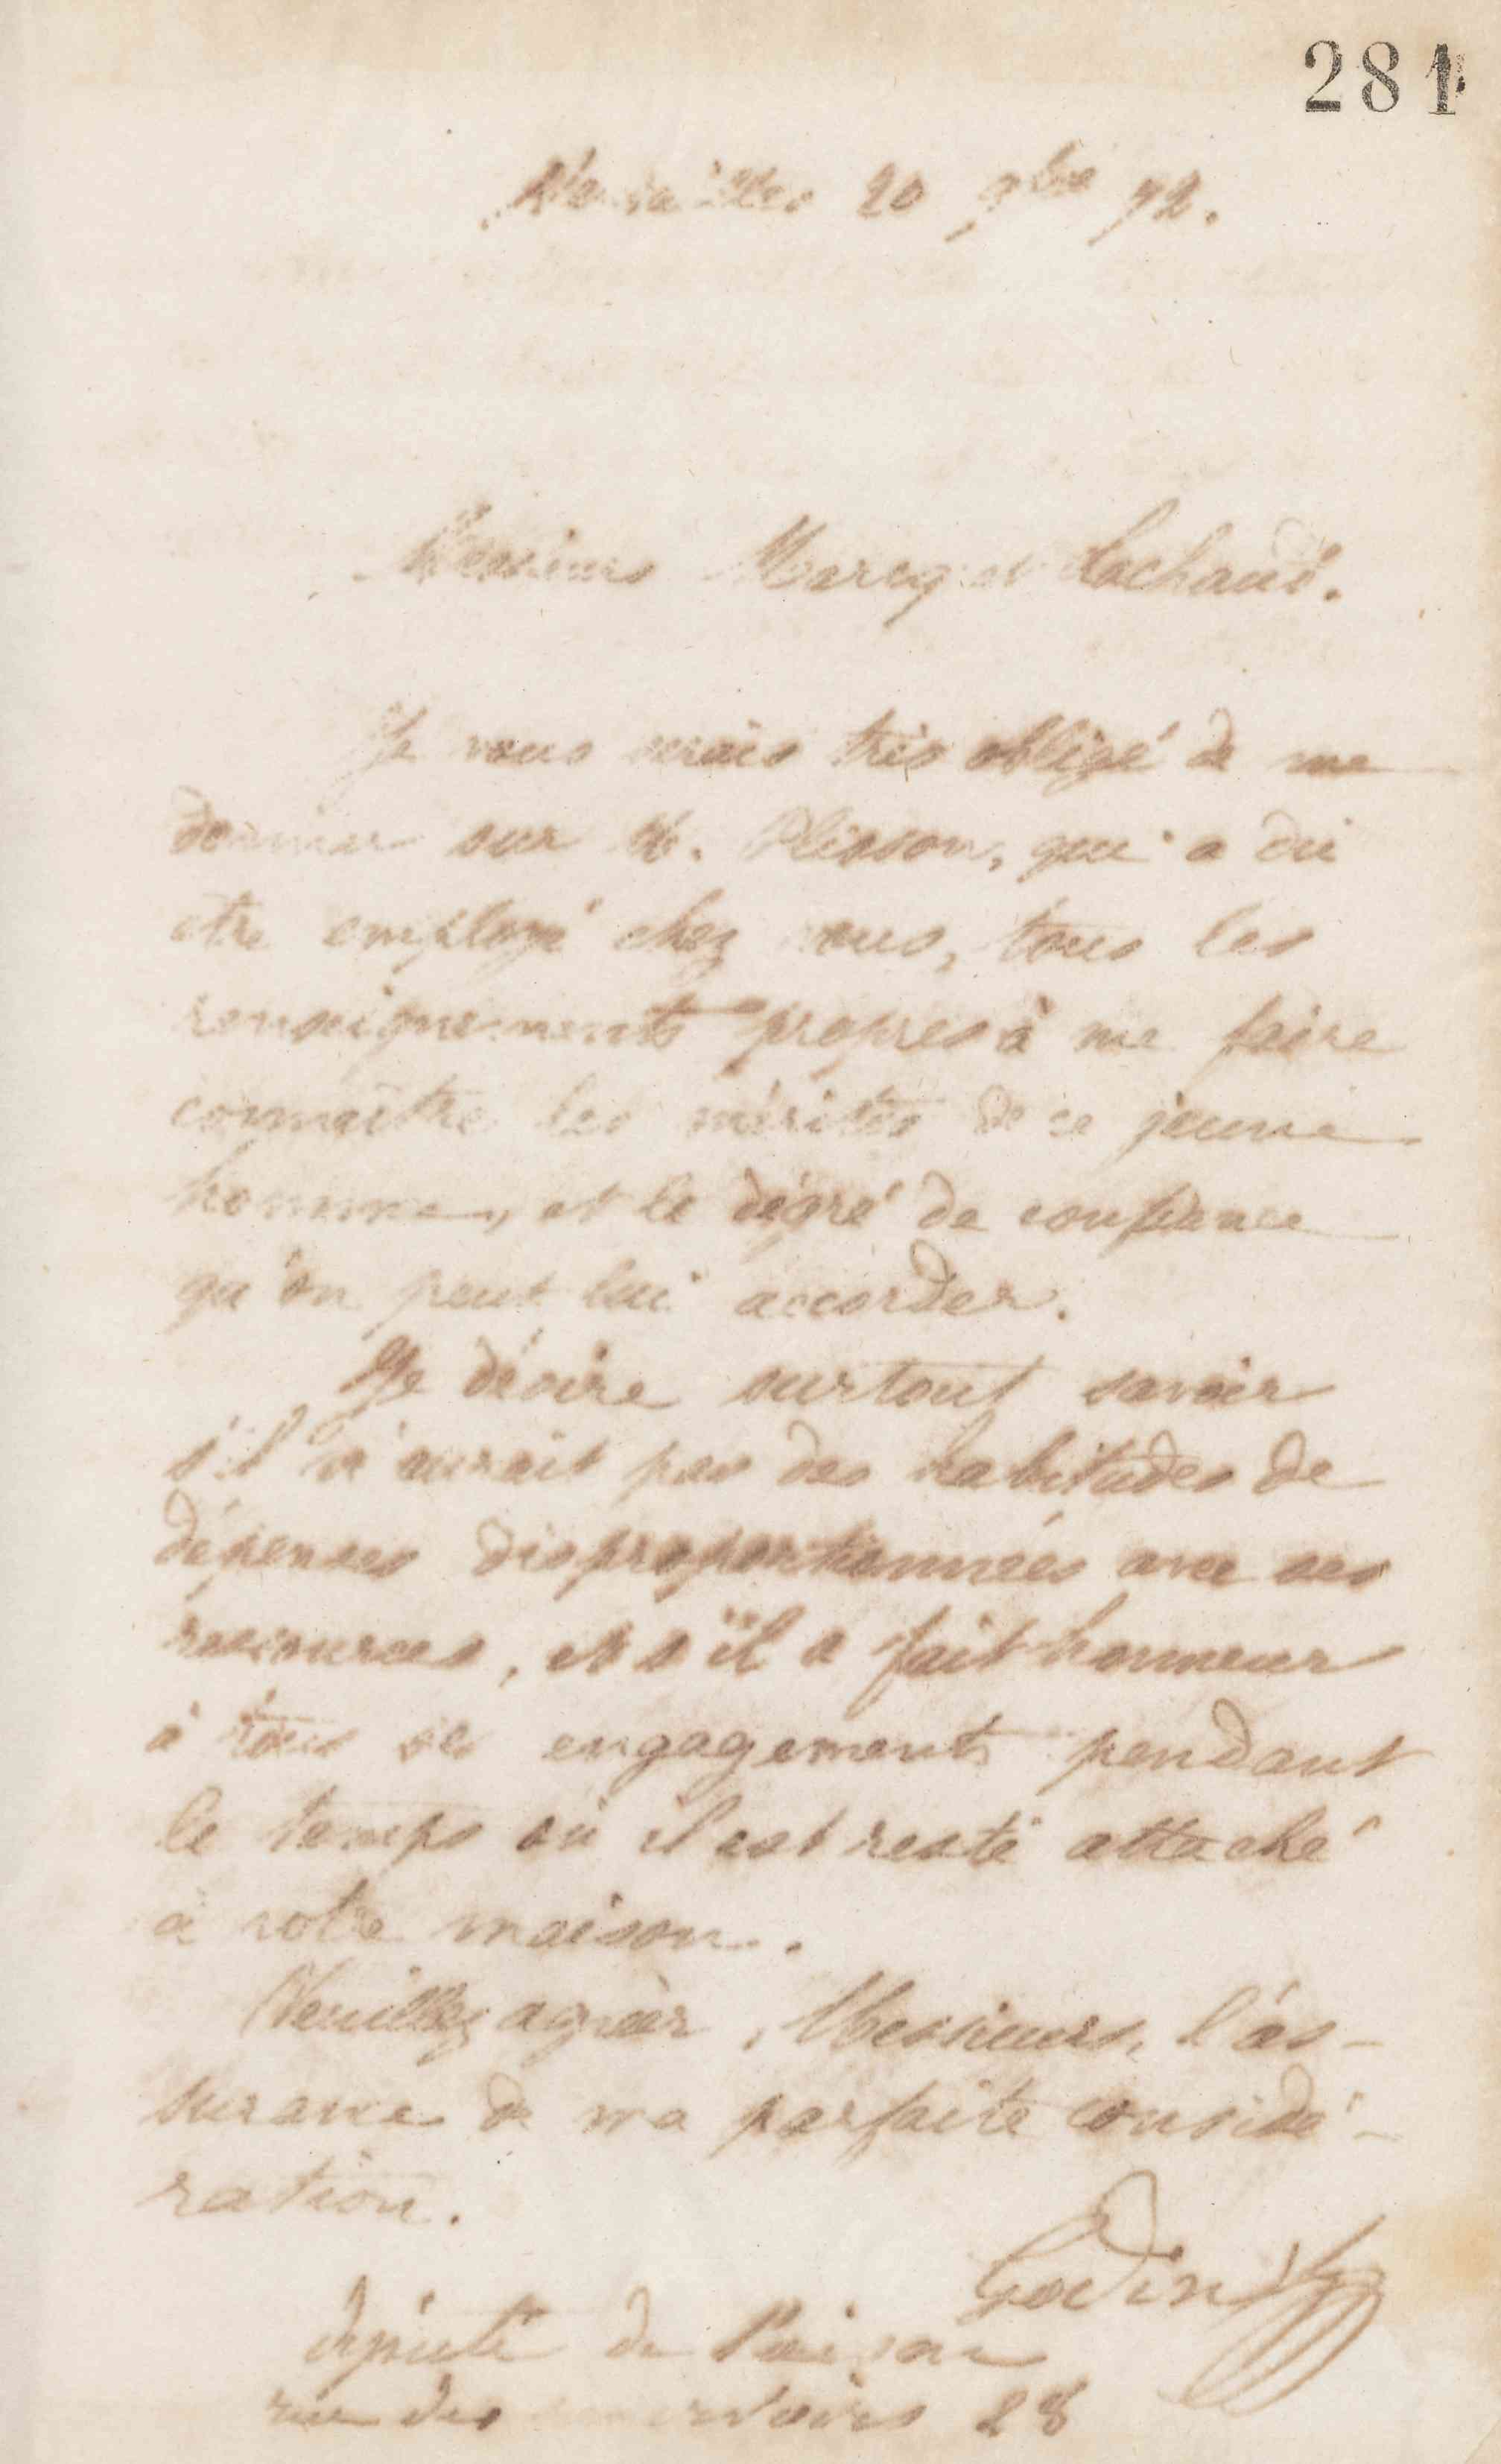 281
Versailles 20 9bre 72.
Messieurs Marcq et Lachaud.
Je vous serais très obligé de me
donner sur M. Plisson, qui a dû
être employé chez vous, tous les
renseignements propres à me faire
connaître les mérites de ce jeune
homme, et le dégré de confiance
qu'on peut lui accorder.
Je désire surtout savoir
s'il n'aurait pas des habitudes de
dépenses disproportionnées avec ses
ressources, et s'il a fait honneur
à tous ses engagements pendant
le temps où il est resté attaché
à votre maison.
Veuillez agréer, Messieurs, l'as-
surance de ma parfaite considé-
ration.
Godin
député de l'Aisne
rue des 28